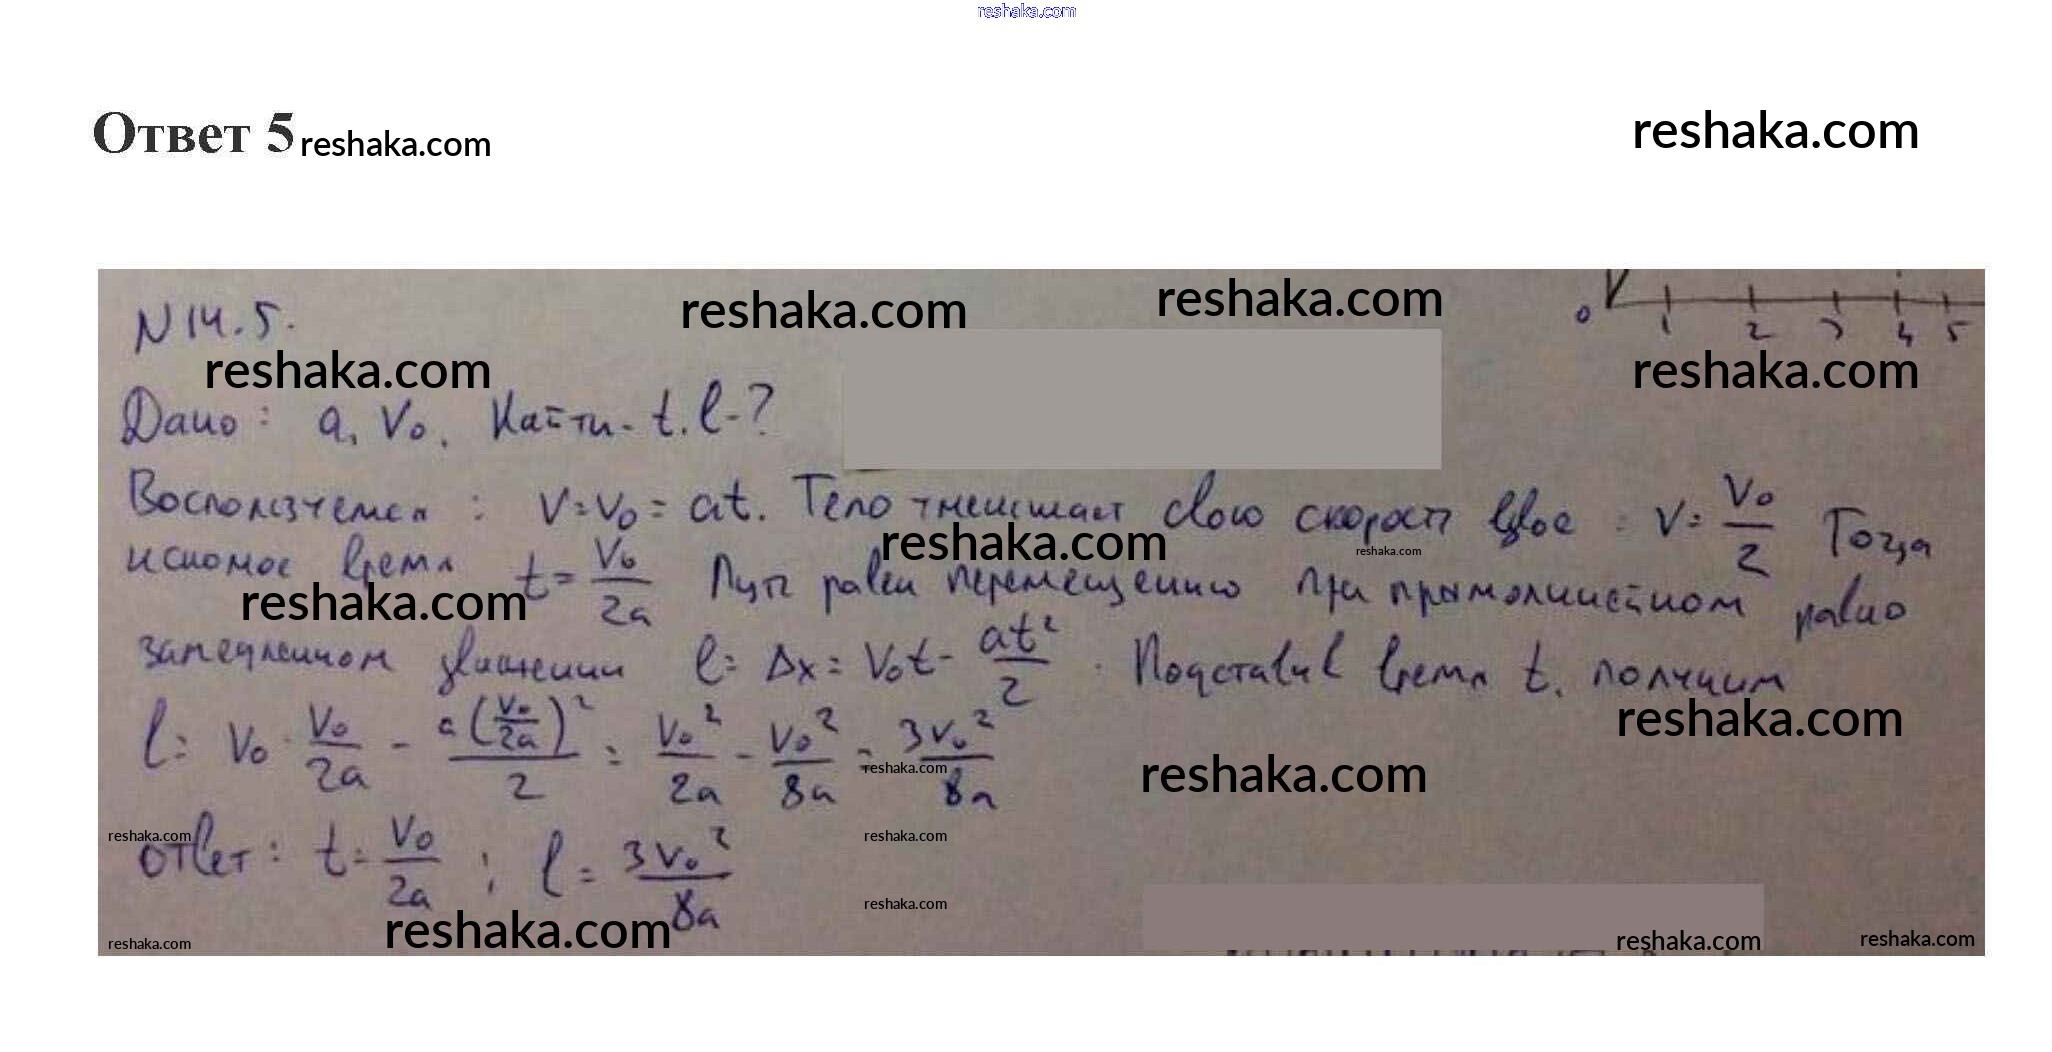 reshaka.com
Ответ 5 reshaka.com
reshaka.com
N 14.5.
reshaka.com
reshaka.com
0 1 2 3 4 5
reshaka.com
reshaka.com
Дано: a, V₀. Найти - t. l - ?
Воспользуемся: V = V₀ = at. Тело уменьшает свою скорость вдвое: V = V₀/2 Тогда
reshaka.com
reshaka.com
искомое время t = V₀/2a Путь равен перемещению при прямолинейном равно
reshaka.com
замедленном движении l = Δx = V₀t - at²/2. Подставив время t, получим
reshaka.com
l = V₀ · V₀/2a - a(V₀/2a)²/2 = V₀²/2a - V₀²/8a = 3V₀²/8a
reshaka.com
reshaka.com
reshaka.com
reshaka.com
ответ: t = V₀/2a ; l = 3V₀²/8a
reshaka.com
reshaka.com
reshaka.com
reshaka.com
reshaka.com